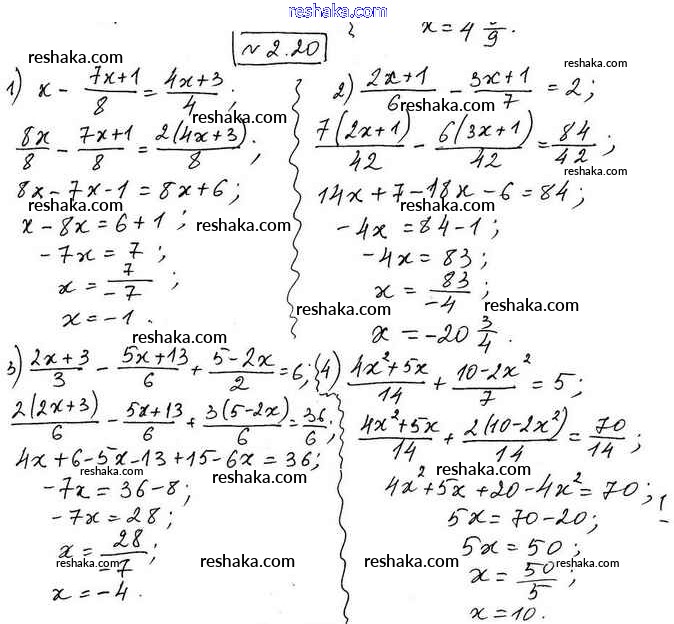 www.reshaka.com
x = 4 5/9.
№ 2.20
1) x - (7x+1)/8 = (4x+3)/4;
reshaka.com
8x/8 - (7x+1)/8 = 2(4x+3)/8;
reshaka.com
8x - 7x - 1 = 8x + 6;
reshaka.com
x - 8x = 6 + 1;
reshaka.com
-7x = 7;
x = 7/-7;
reshaka.com
x = -1.
reshaka.com
2) (2x+1)/6 - (3x+1)/7 = 2;
reshaka.com
reshaka.com
7(2x+1)/42 - 6(3x+1)/42 = 84/42;
reshaka.com
14x + 7 - 18x - 6 = 84;
reshaka.com
reshaka.com
-4x = 84 - 1;
-4x = 83;
x = 83/-4;
reshaka.com
x = -20 3/4.
reshaka.com
3) (2x+3)/3 - (5x+13)/6 + (5-2x)/2 = 6;
reshaka.com
2(2x+3)/6 - (5x+13)/6 + 3(5-2x)/6 = 36/6;
reshaka.com
4x + 6 - 5x - 13 + 15 - 6x = 36;
reshaka.com
-7x = 36 - 8;
reshaka.com
-7x = 28;
x = 28/-7;
reshaka.com
x = -4.
4) (4x²+5x)/14 + (10-2x²)/7 = 5;
reshaka.com
(4x²+5x)/14 + 2(10-2x²)/14 = 70/14;
reshaka.com
4x² + 5x + 20 - 4x² = 70;
reshaka.com
5x = 70 - 20;
5x = 50;
reshaka.com
x = 50/5;
reshaka.com
x = 10.